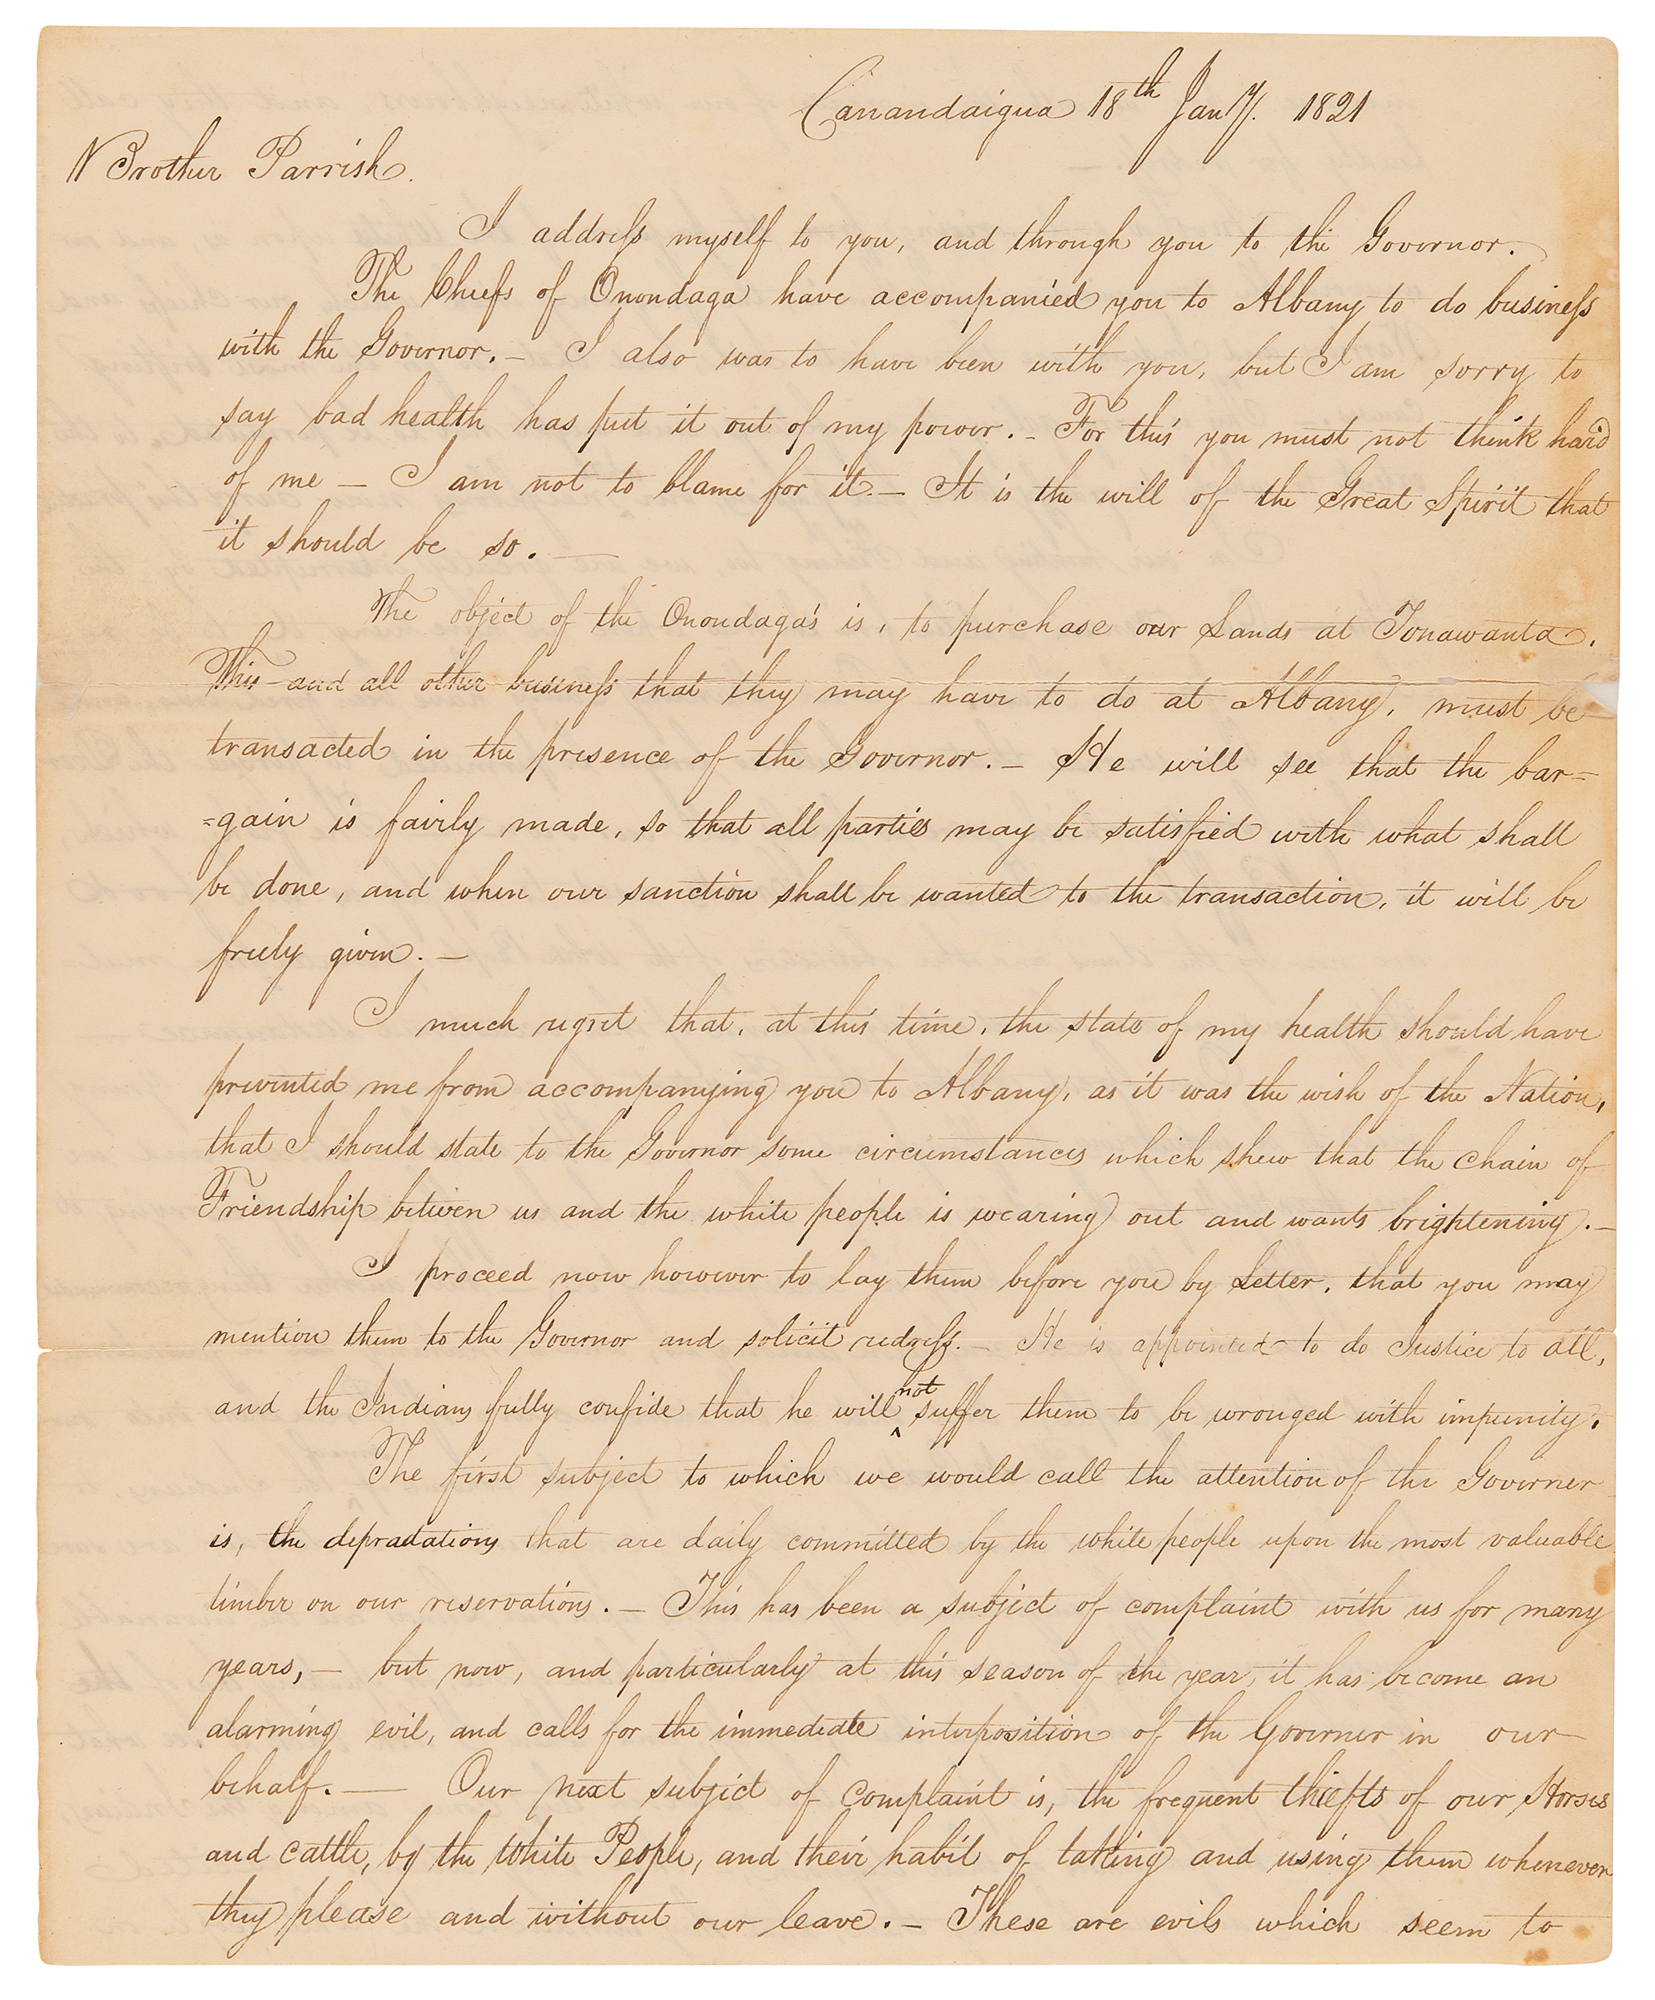 Canandaigua 18th Jany. 1821
Brother Parrish.
I address myself to you, and through you to the Governor.
The Chiefs of Onondaga have accompanied you to Albany to do business
with the Governor. – I also was to have been with you, but I am sorry to
say bad health has put it out of my power. – For this you must not think hard
of me – I am not to blame for it – It is the will of the Great Spirit that
it should be so. —
The object of the Onondaga's is, to purchase our Lands at Tonawanta.
This and all other business that they may have to do at Albany, must be
transacted in the presence of the Governor. – He will see that the bar=
=gain is fairly made, so that all parties may be satisfied with what shall
be done, and when our sanction shall be wanted to the transaction, it will be
freely given. –
I much regret that, at this time, the state of my health should have
prevented me from accompanying you to Albany, as it was the wish of the Nation,
that I should state to the Governor some circumstances which shew that the chain of
Friendship between us and the white people is wearing out and wants brightening. –
I proceed now however to lay them before you by Letter, that you may
mention them to the Governor and solicit redress. – He is appointed to do Justice to all,
and the Indians fully confide that he will ^not suffer them to be wronged with impunity.
The first subject to which we would call the attention of the Governer
is, the depradations that are daily committed by the white people upon the most valuable
timber on our reservations. – This has been a subject of complaint with us for many
years, – but now, and particularly at this season of the year, it has become an
alarming evil, and calls for the immediate interposition of the Governer in our
behalf. — Our next subject of complaint is, the frequent thiefts of our Horses
and cattle, by the White People, and their habit of taking and using them whenever
they please and without our leave. – These are evils which seem to